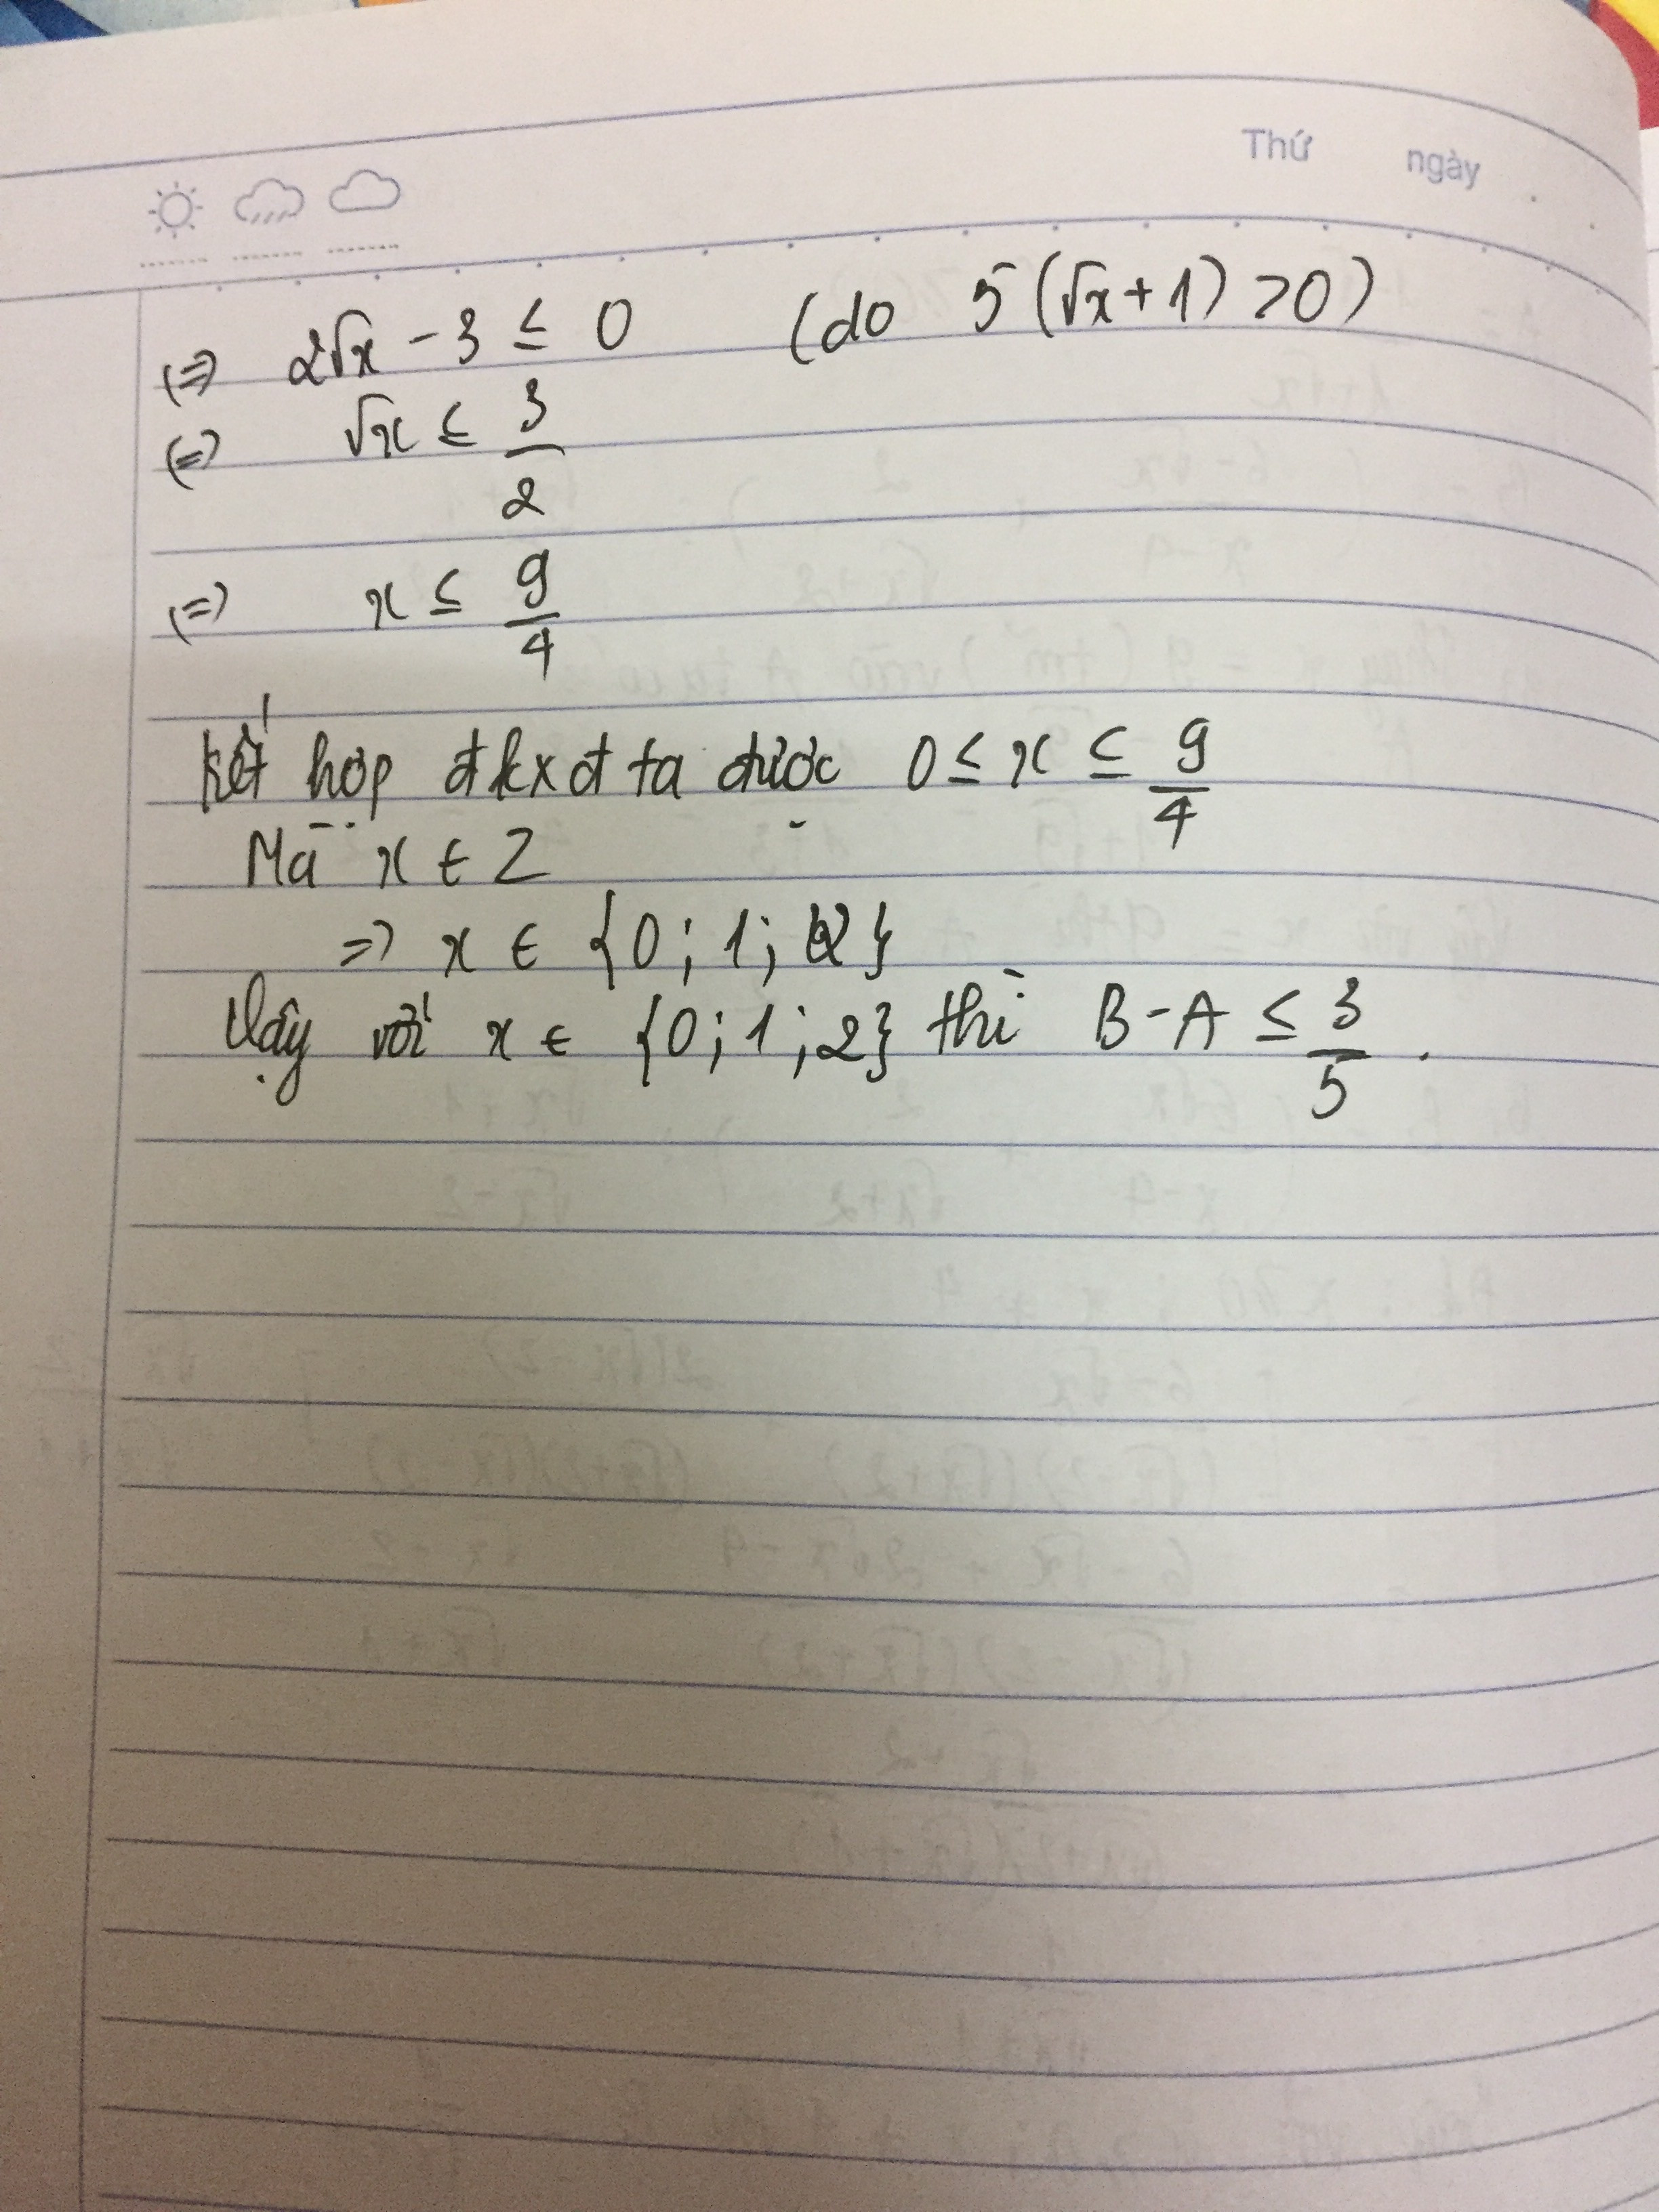 Thứ ngày
(=) 2√x - 3 ≤ 0 (do 5(√x + 1) > 0)
(=) √x ≤ 3/2
(=) x ≤ 9/4
Kết hợp đkxđ ta được 0 ≤ x ≤ 9/4
Mà x ∈ Z
=> x ∈ {0; 1; 2}
Vậy với x ∈ {0; 1; 2} thì B - A ≤ 3/5.